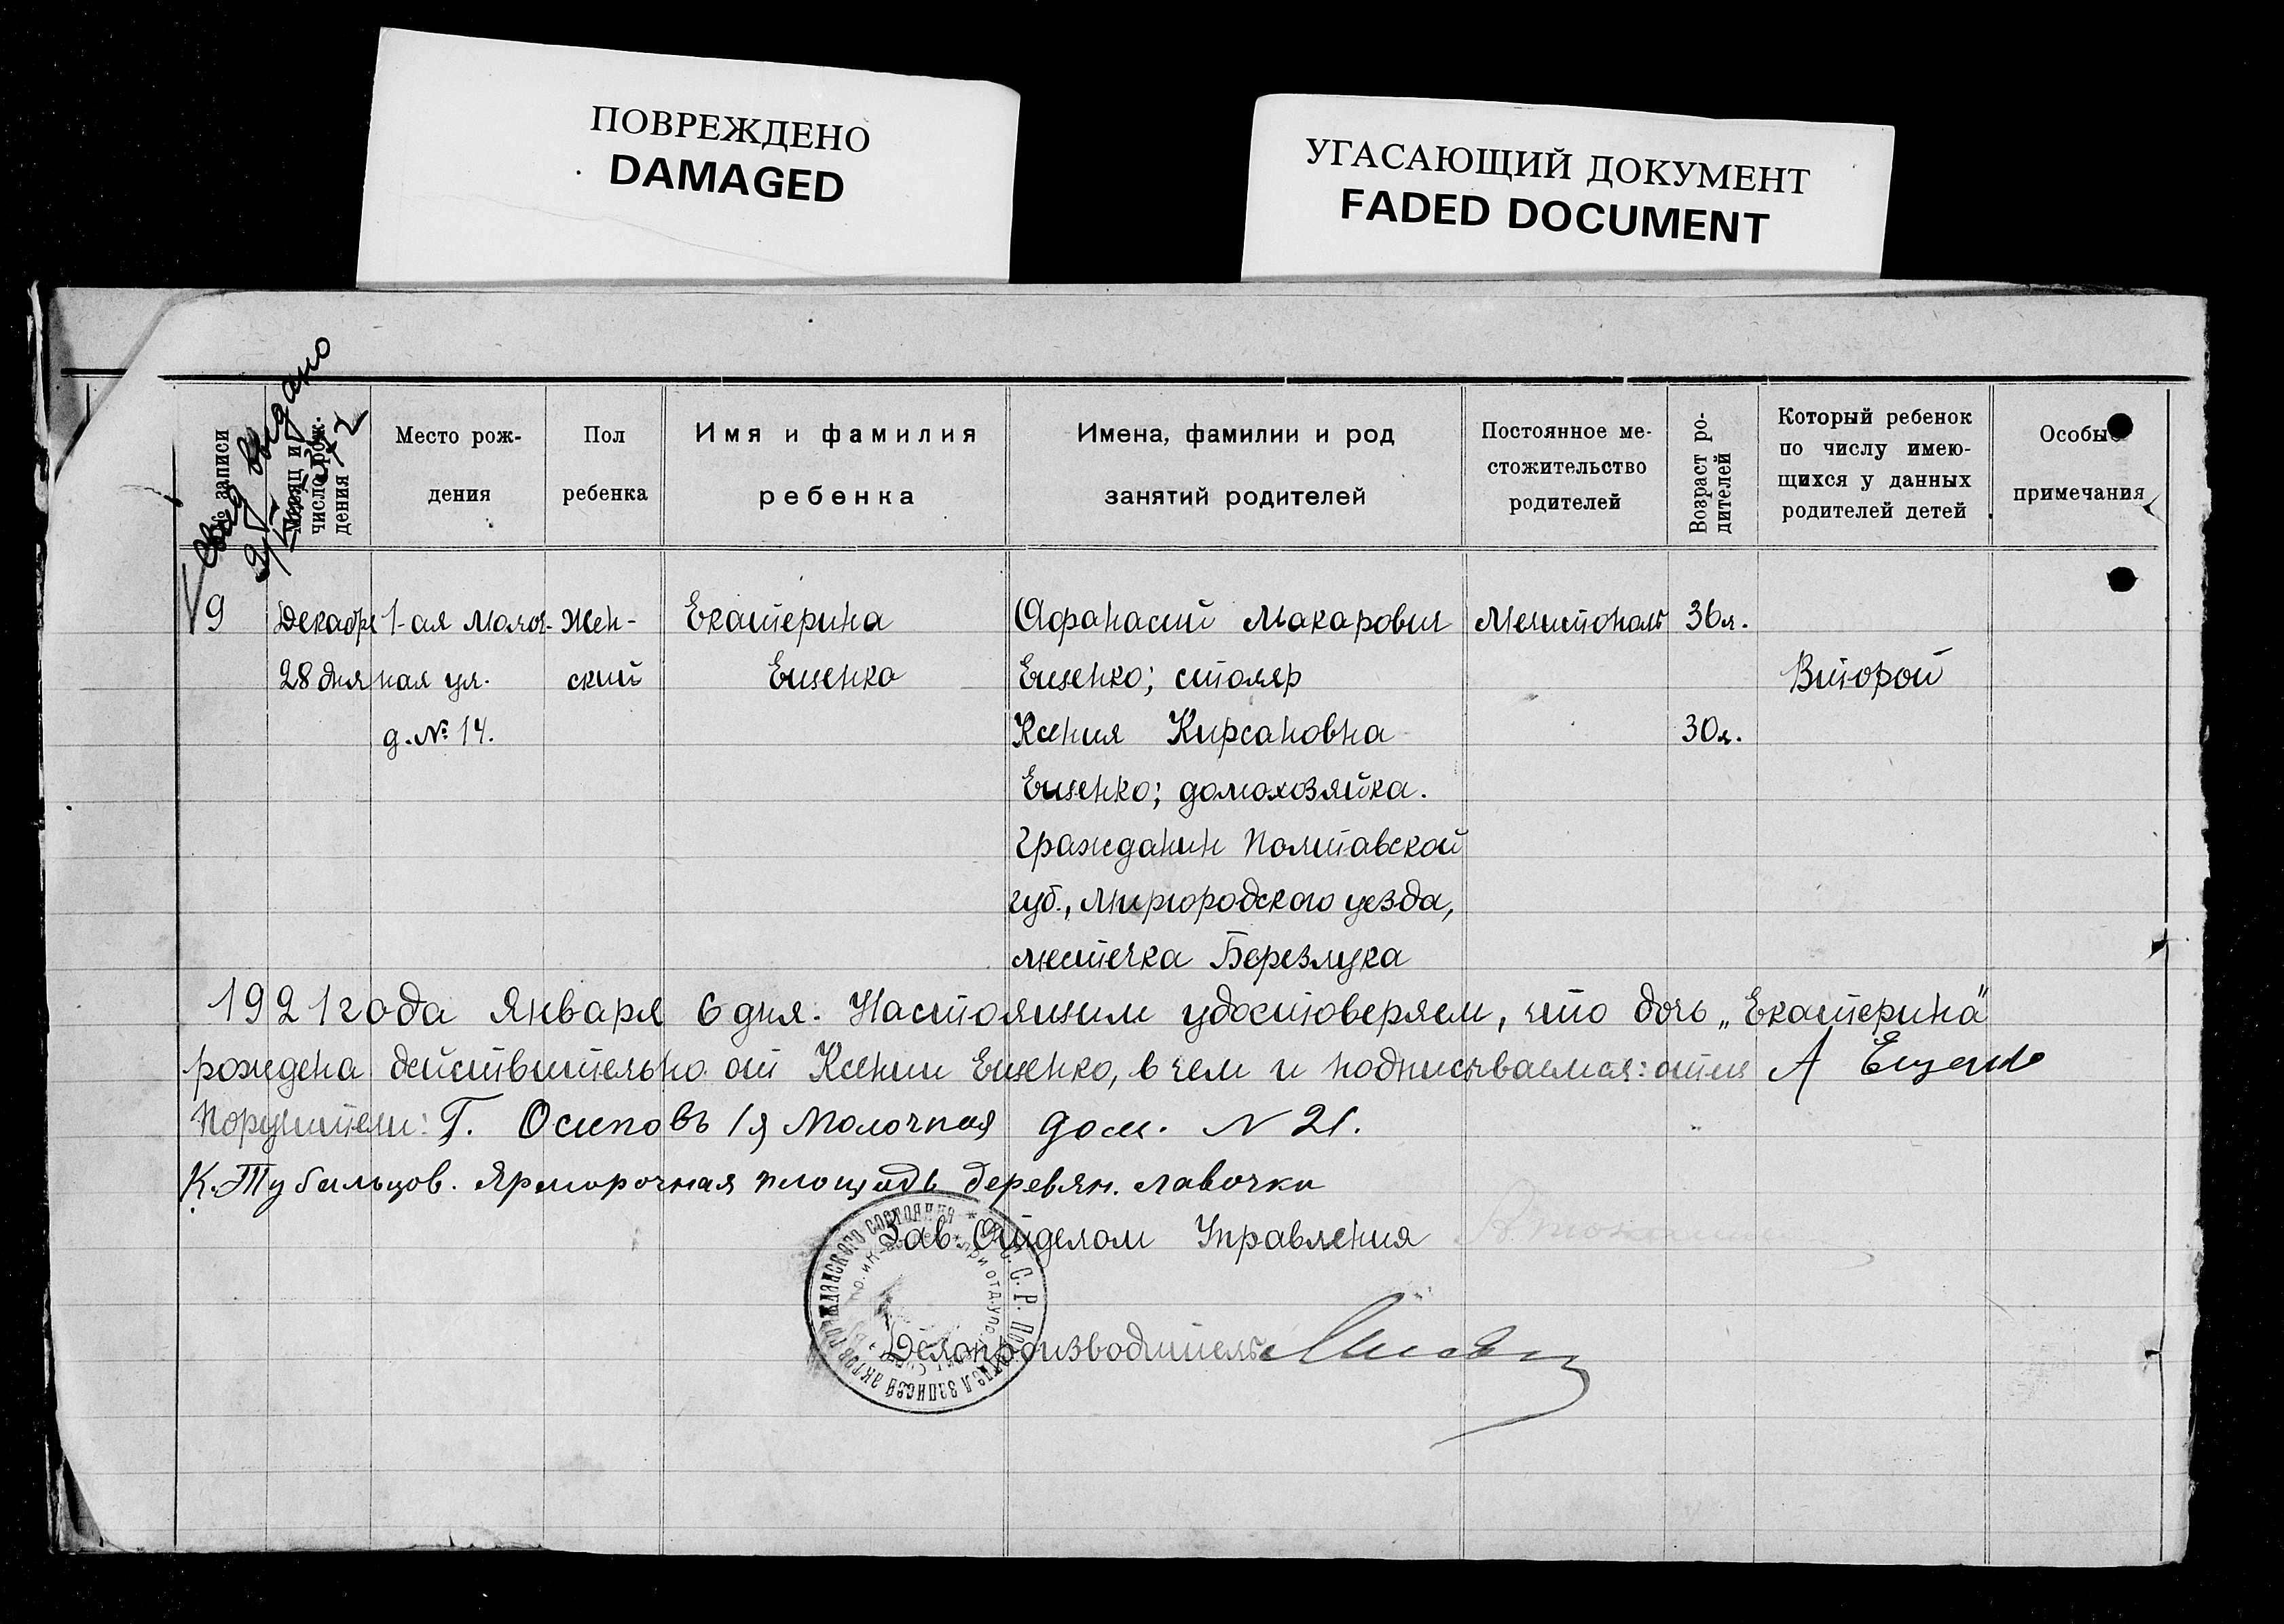 ПОВРЕЖДЕНО
DAMAGED
УГАСАЮЩИЙ ДОКУМЕНТ
FADED DOCUMENT
выдано
№ записи
Месяц и число рож-
дения
Место рож-
дения
Пол
ребенка
Имя и фамилия
ребенка
Имена, фамилии и род
занятий родителей
Постоянное ме-
стожительство
родителей
Возраст ро-
дителей
Который ребенок
по числу имею-
щихся у данных
родителей детей
Особые
примечания
9 Декабря 1-ая Молоч- Жен- Екатерина Афанасий Макарович Мелитополь 36 л.
28 дня ная ул. ский Ещенко Ещенко; столяр Второй
д. № 14. Ксения Кирсановна 30 л.
Ещенко; домохозяйка.
Гражданин Полтавской
губ., Миргородского уезда,
местечка Березлука
1921 года Января 6 дня. Настоящим удостоверяем, что дочь „Екатерина"
рождена действительно от Ксении Ещенко, в чем и подписываемся: отец А Ещенко
Поручители: Г. Осиповъ 1я Молочная дом. N 21.
К. Тубальцов. Ярморочная площадь деревян. лавочки
Зав. Отделом Управления
Делопроизводитель